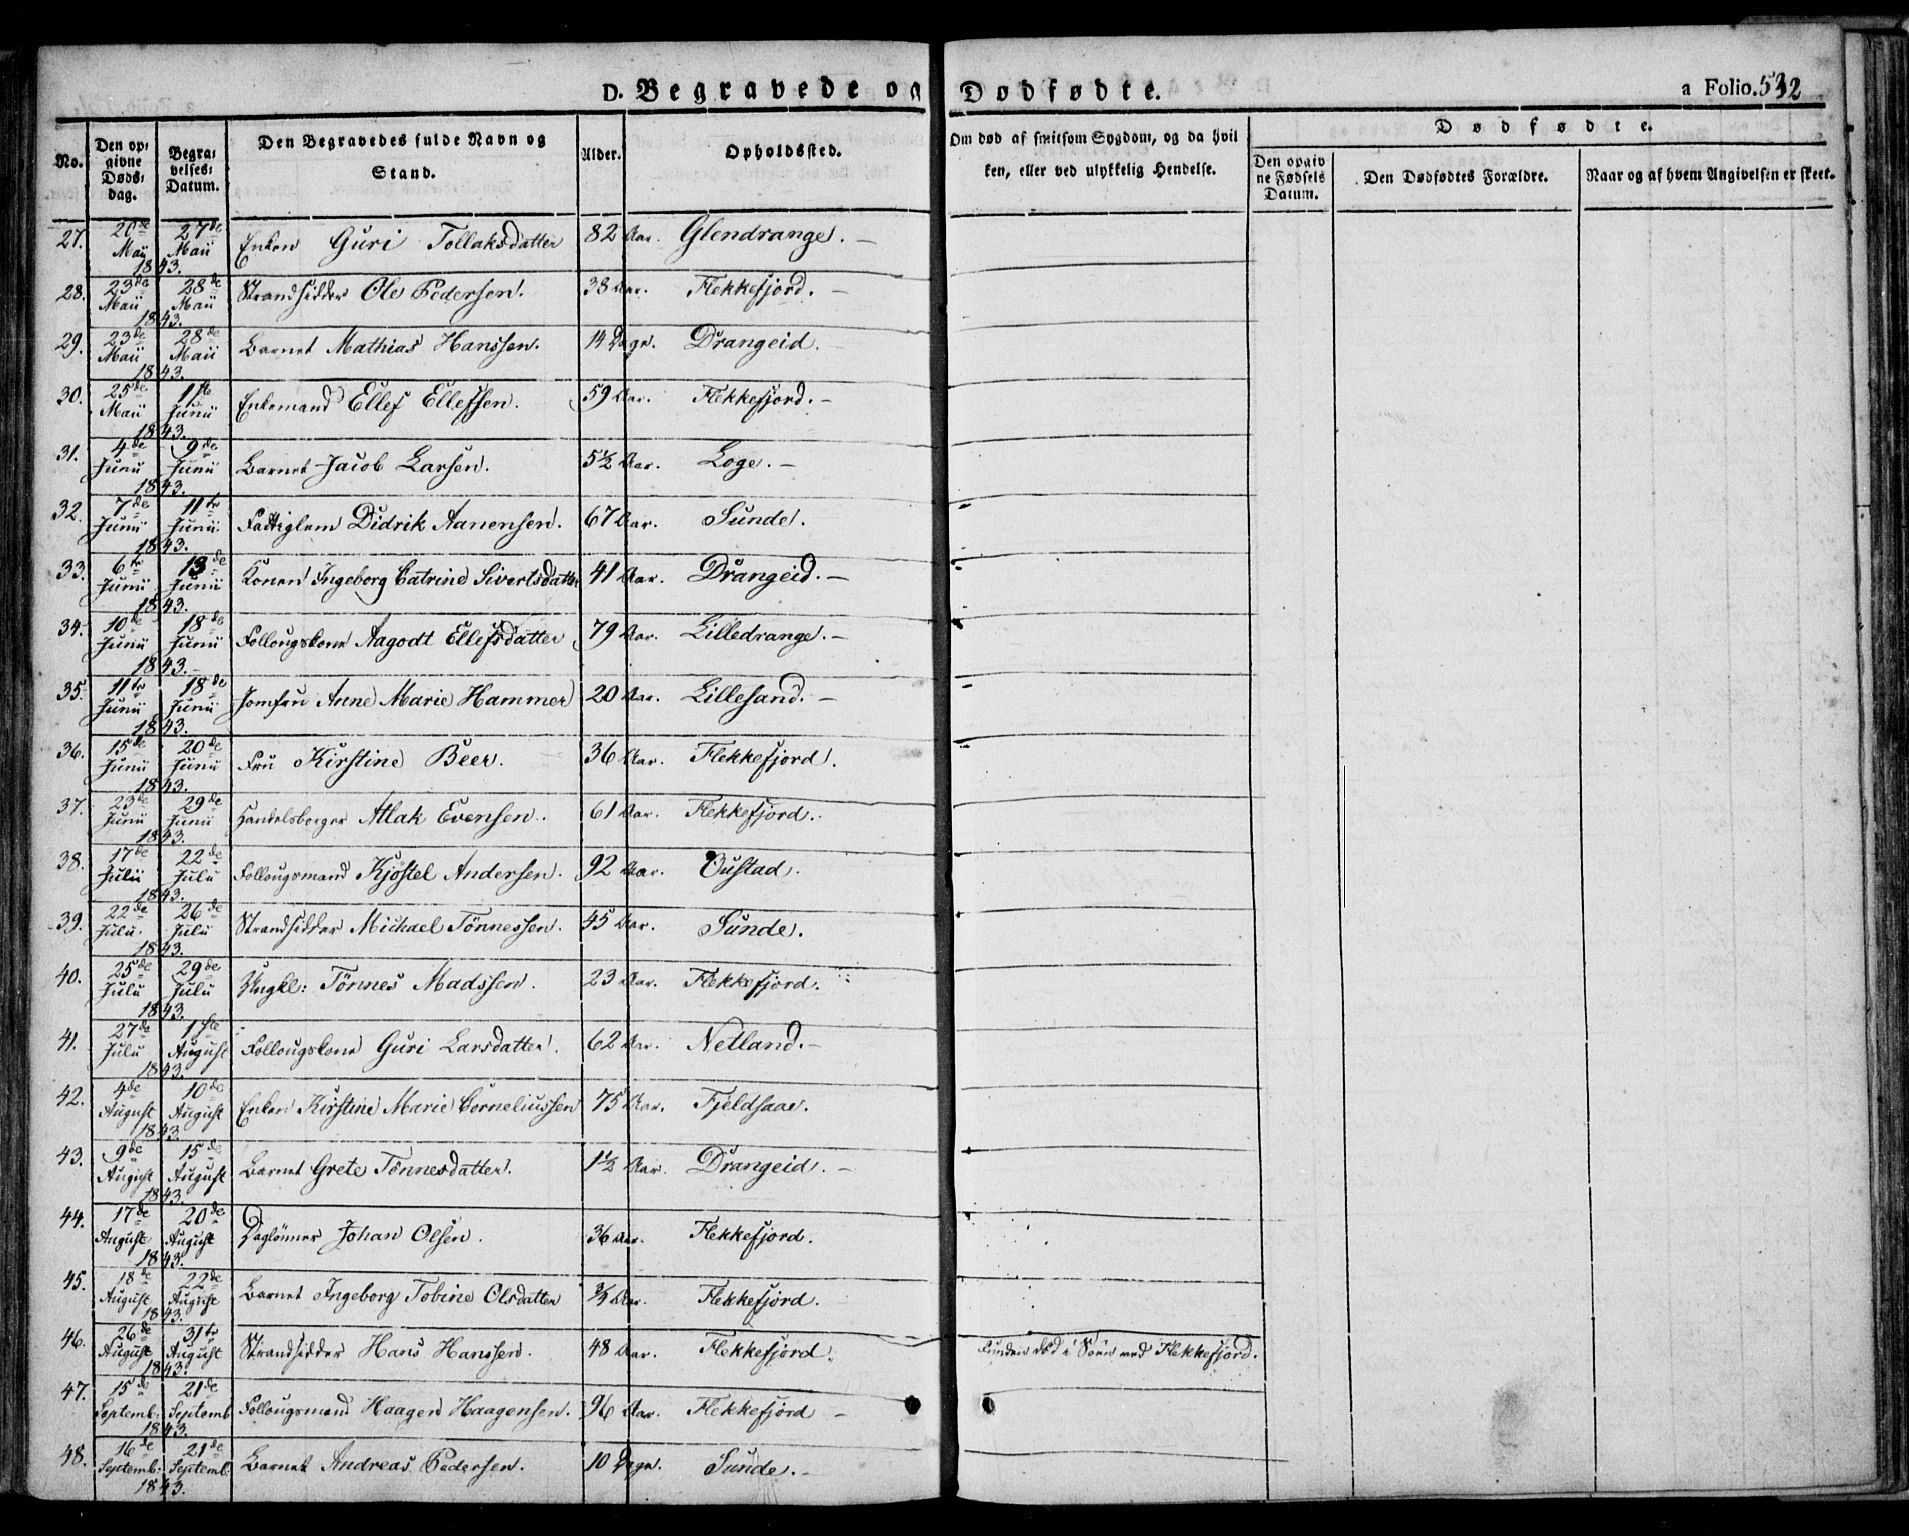 D. Begravede og Dødfødte. a Folio.532
No. Den opgivne Dødsdag. Begravelses-Datum. Den Begravedes fulde Navn og Stand. Alder. Opholdssted. Om død af smitsom Sygdom, og da hvilken, eller ved ulykkelig Hendelse. Dødfødte. Den opgivne Fødsels Datum. Den Dødfødtes Forældre. Naar og af hvem Angivelsen er skeet.
27. 20de Maii 27de Maii 1843. Enken Guri Tollaksdatter 82 Aar. Glendrange. —
28. 23de Maii 28de Maii 1843. Strandsidder Ole Pedersen. 38 Aar. Flekkefjord. —
29. 23de Maii 28de Maii 1843. Barnet Mathias Hanssen. 14 Dage. Drangeid. —
30. 25de Maii 1ste Junii 1843. Enkemand Ellef Ellefsen. 59 Aar. Flekkefjord. —
31. 4de Junii 9de Junii 1843. Barnet Jacob Larsen. 5½ Aar. Loge. —
32. 7de Junii 11te Junii 1843. Fattiglem Didrik Aanensen. 67 Aar. Sunde.
33. 6te Junii 13de Junii 1843. Konen Ingeborg Catrine Sivertsdatter 41 Aar. Drangeid. —
34. 10de Junii 18de Junii 1843. Follougskone Aagodt Ellefsdatter 79 Aar. Lilledrange. —
35. 11te Junii 18de Junii 1843. Jomfru Anne Marie Hammer 20 Aar. Lillesand. —
36. 15de Junii 20de Junii 1843. Fru Kirstine Beer. 36 Aar. Flekkefjord.
37. 23de Junii 29de Junii 1843. Handelsborger Atlak Evensen. 61 Aar. Flekkefjord.
38. 17de Julii 22de Julii 1843. Follougsmand Kjøstel Andersen. 92 Aar. Oustad.
39. 22de Julii 26de Julii 1843. Strandsidder Michael Tønnessen. 45 Aar. Sunde.
40. 25de Julii 29de Julii 1843. Ungkl: Tønnes Madssen. 23 Aar. Flekkefjord.
41. 27de Julii 1ste August 1843. Follougskone Guri Larsdatter. 62 Aar. Netland. —
42. 4de August 10de August 1843. Enken Kirstine Marie Corneliussen 75 Aar. Fjeldsaae.
43. 9de August 15de August 1843. Barnet Grete Tønnesdatter. 1½ Aar. Drangeid. —
44. 17de August 20de August 1843. Daglønner Johan Olsen. 36 Aar. Flekkefjord.
45. 18de August 22de August 1843. Barnet Ingeborg Tobine Olsdatter ¾ Aar. Flekkefjord.
46. 26de August 31te August 1843. Strandsidder Hans Hanssen. 48 Aar. Flekkefjord. Funden død i Søen ved Flekkefjord.
47. 15de Septemb: 21de Septemb: 1843. Follougsmand Haagen Haagensen. 96 Aar. Flekkefjord —
48. 16de Septemb: 21de Septemb: 1843. Barnet Andreas Pedersen. 10 Dage. Sunde. —